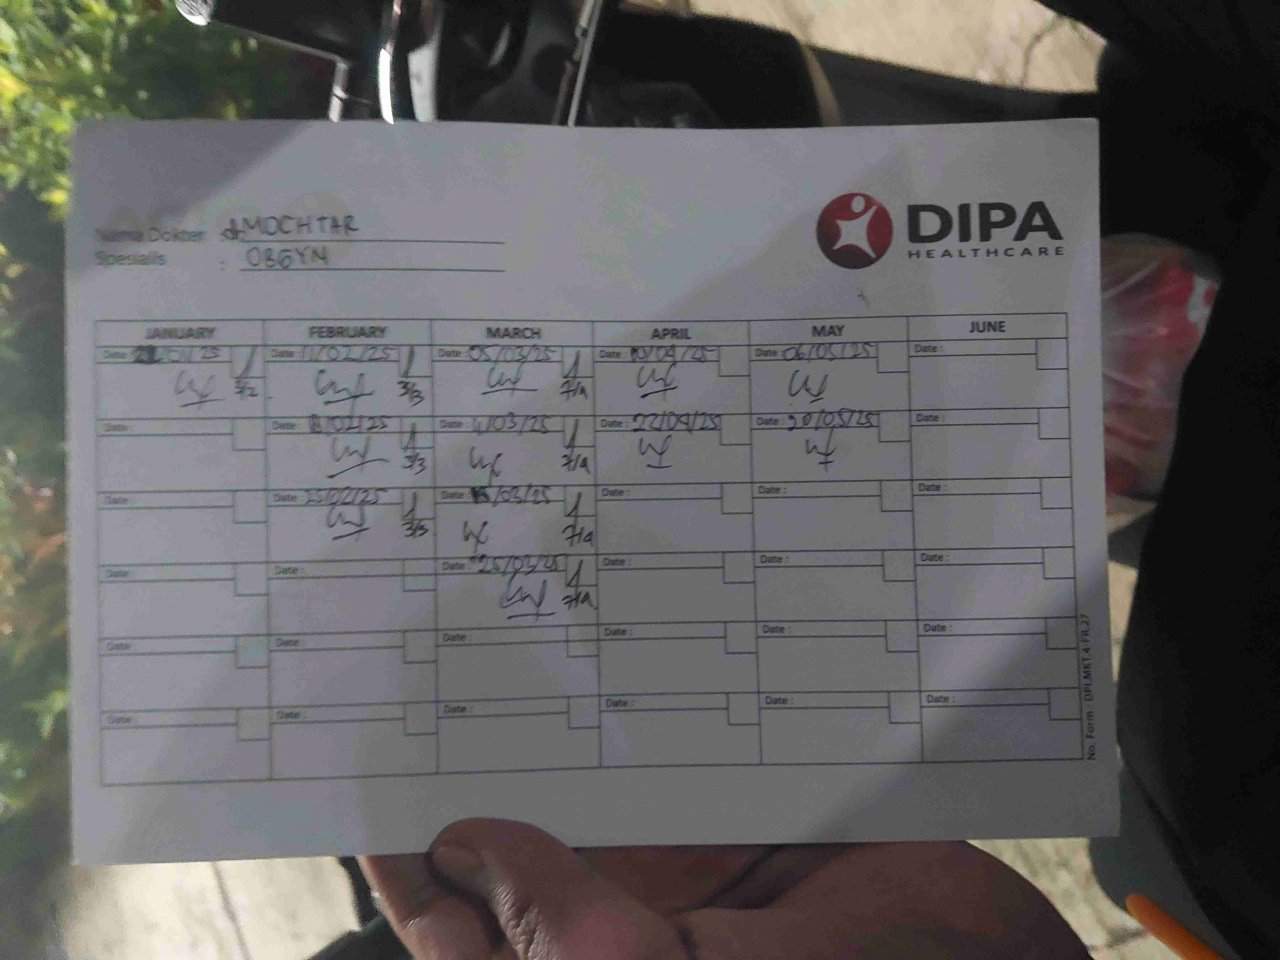 Nama Dokter : dr. MOCHTAR
Spesialis : OBGYN
DIPA
HEALTHCARE
JANUARY FEBRUARY MARCH APRIL MAY JUNE
Date: /01/25 Date: 11/02/25 Date: 05/03/25 Date: 10/04/25 Date: 06/05/25 Date :
3/2 3/3 7/4
Date : Date: 18/02/25 Date: /03/25 Date: 22/04/25 Date: 20/05/25 Date :
3/3 7/4
Date : Date: 25/02/25 Date: /03/25 Date : Date : Date :
3/3 7/4
Date : Date : Date: 25/03/25 Date : Date : Date :
7/4
Date : Date : Date : Date : Date : Date :
Date : Date : Date : Date : Date : Date :
No. Form : DPI.MKT.4-FR.27